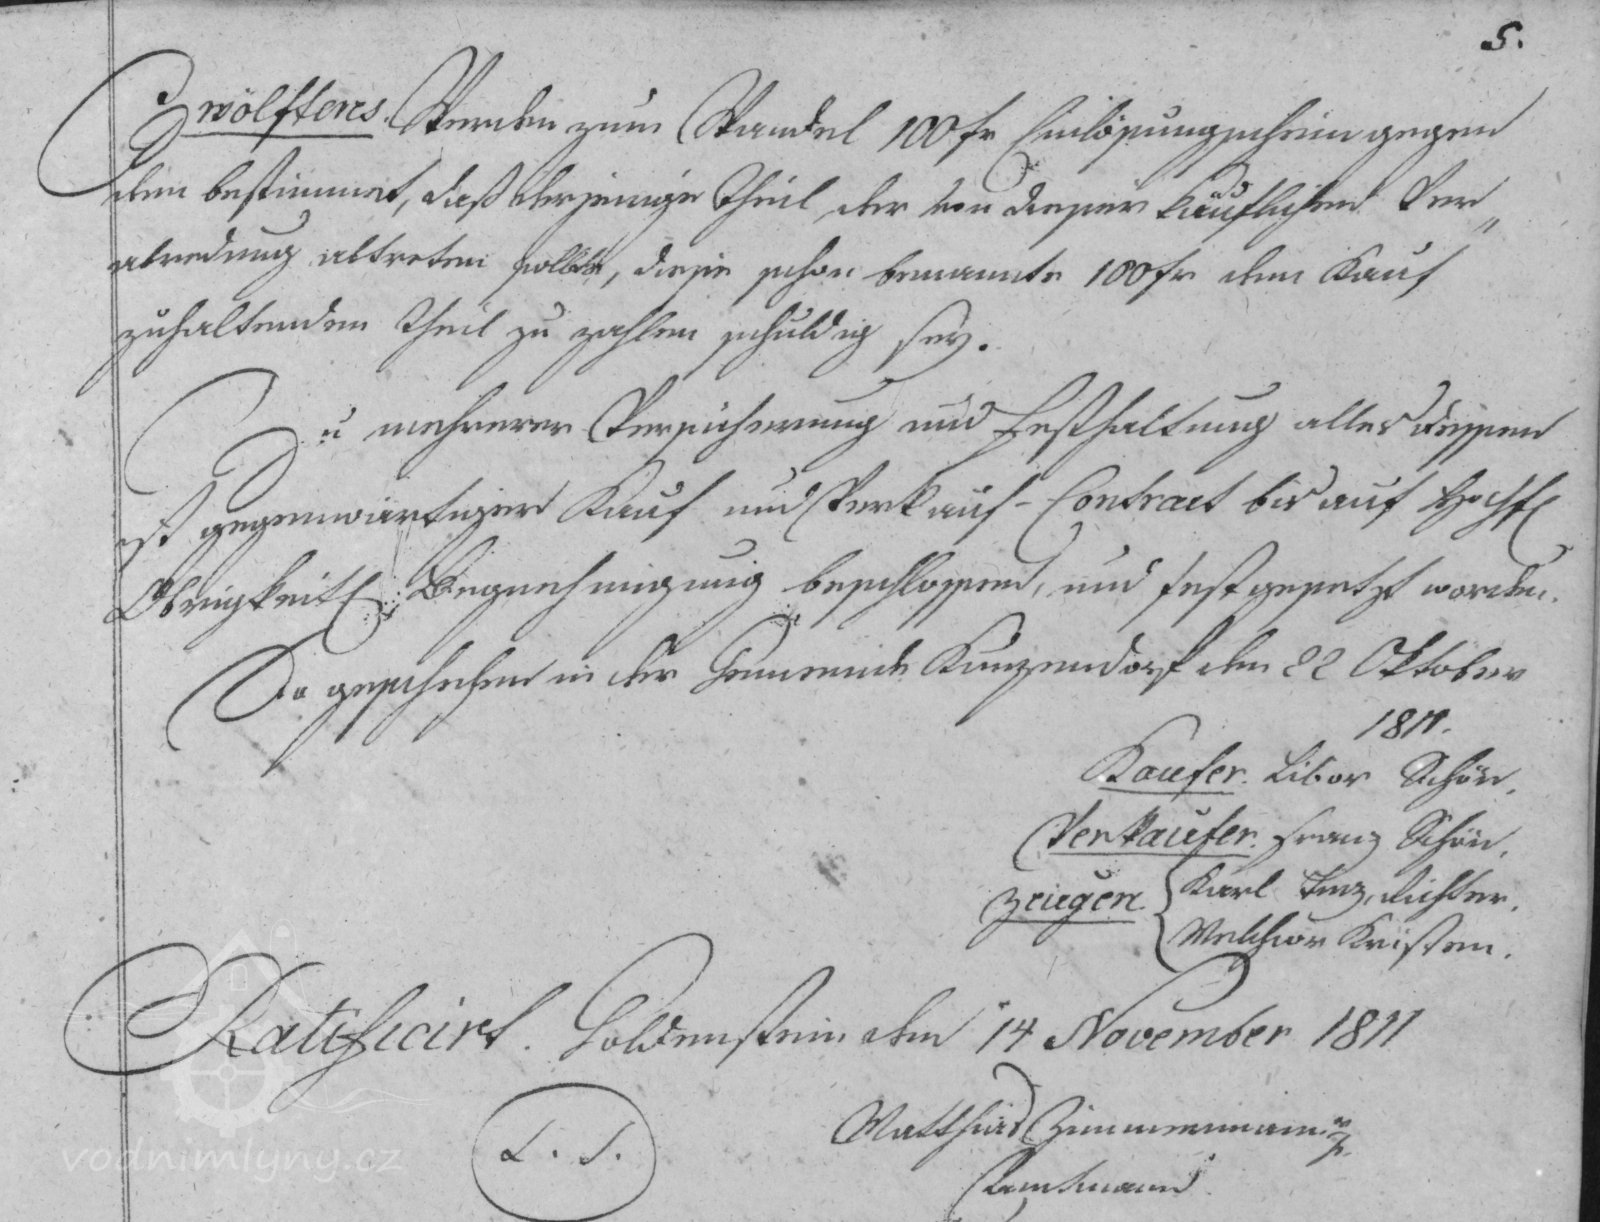 5.
Zwölftens. Werden zum Wandel 100 fr Einlösungsschein gegen
dem bestimmet, daß derjenige Theil, der von dieser käuflichen Ver„
abredung abtreten sollte, diese schon benannte 100 fr dem Kauf
zuhaltenden Theil zu zahlen schuldig sey.
Zu mehrerer Versicherung und Festhaltung alles dessen
ist gegenwärtiger Kauf und Verkauf-Contract bis auf Hochfl
Obrigkeitl: Begnehmigung beschlossen, und festgesetzt worden.
So geschehen in der Gemeinde Kunzendorf den 22 Oktober
1811.
Kaufer. Libor Schön.
Verkaufer. Franz Schön.
Zeugen. Karl Richter.
Melchior Kristen.
Ratificirt. Goldenstein den 14 November 1811
L. S.
Matthias Zimmermann
Amtmann
vodnimlyny.cz